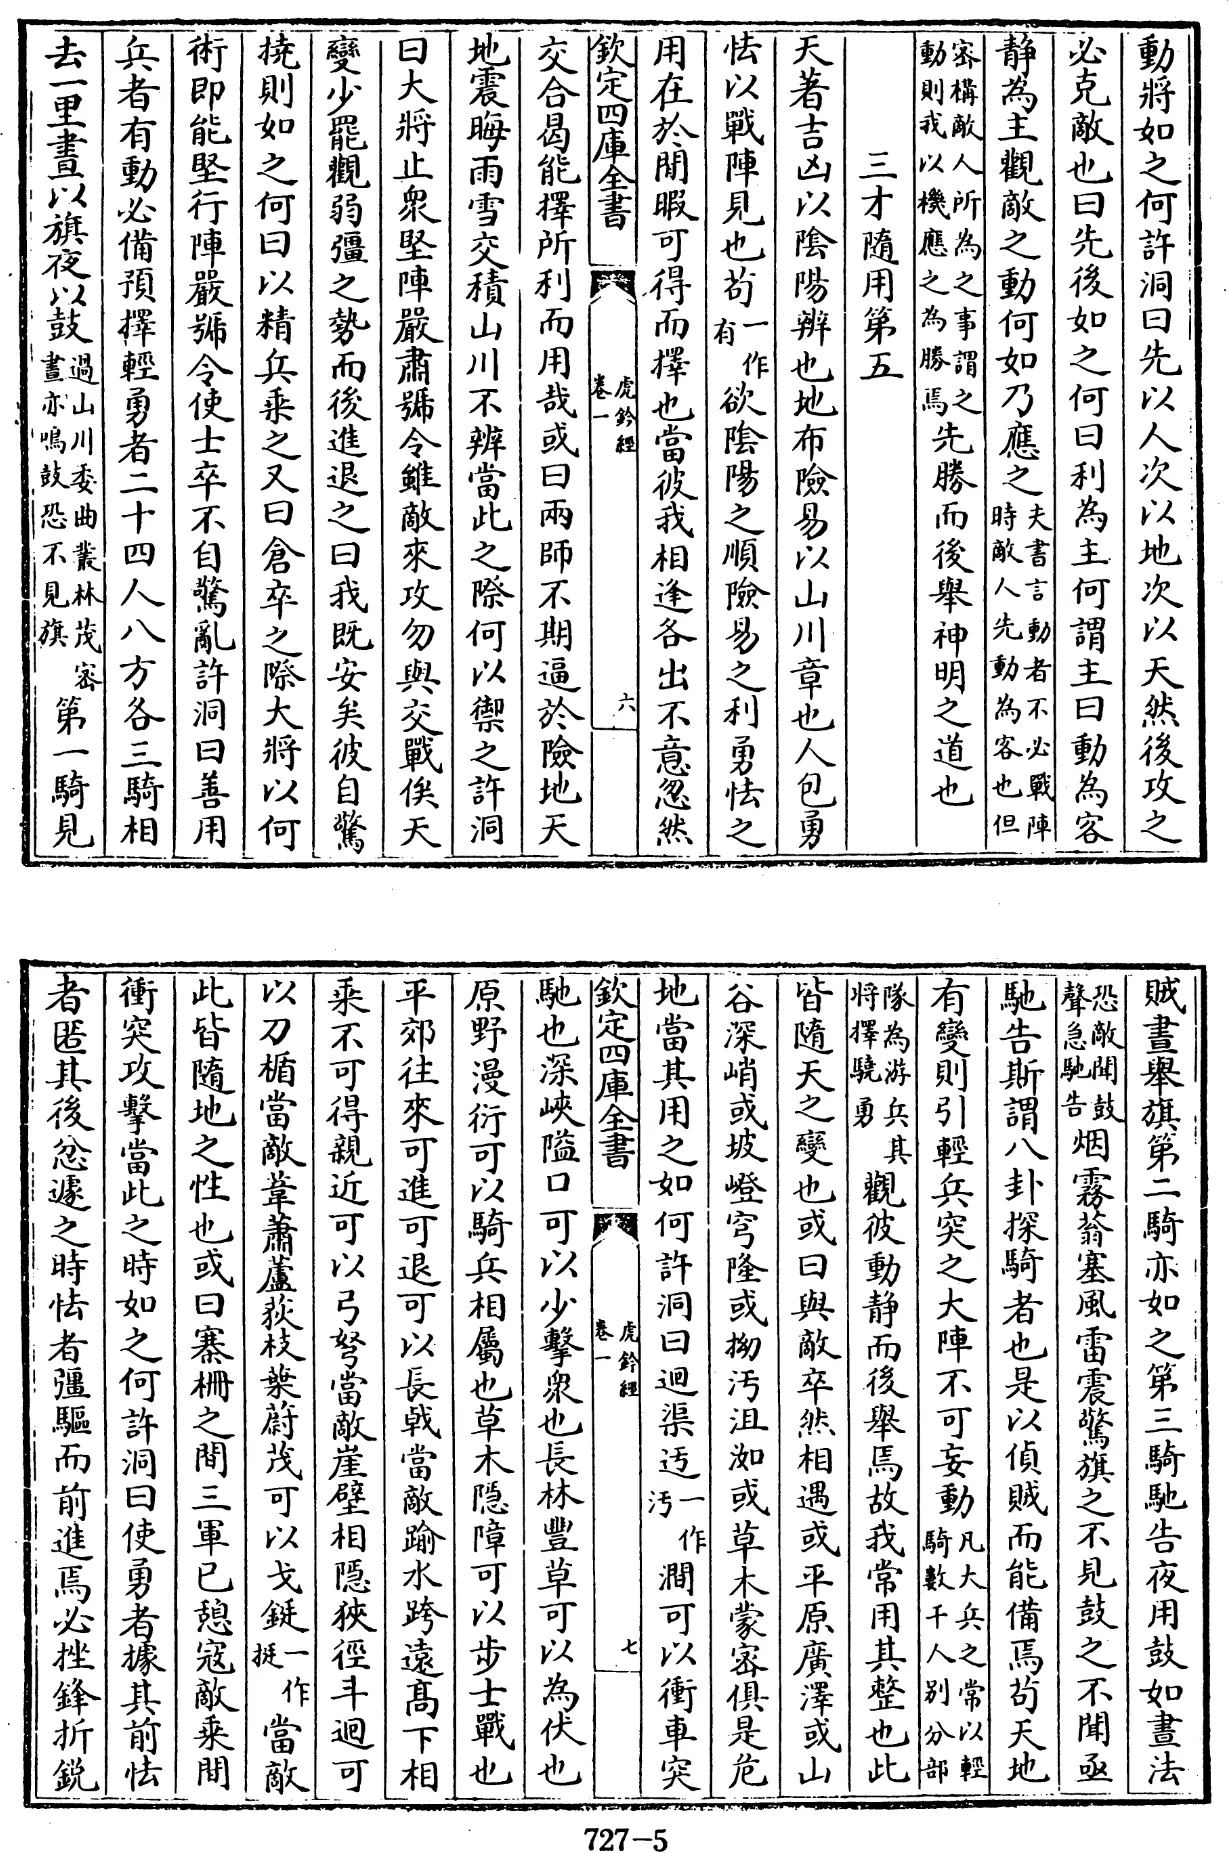 動將如之何許洞曰先以人次以地次以天然後攻之
必克敵也曰先後如之何曰利為主何謂主曰動為客
靜為主觀敵之動何如乃應之夫書言動者不必戰陣時敵人先動為客也但
密構敵人所為之事謂之動則我以機應之為勝焉先勝而後舉神明之道也
三才隨用第五
天著吉凶以陰陽辨也地布險易以山川章也人包勇
怯以戰陣見也茍一作有欲陰陽之順險易之利勇怯之
用在於閒暇可得而擇也當彼我相逢各出不意忽然
欽定四庫全書
虎鈐經
卷一
六
交合曷能擇所利而用哉或曰兩師不期逼於險地天
地震晦雨雪交積山川不辨當此之際何以禦之許洞
曰大將止衆堅陣嚴肅號令雖敵來攻勿與交戰俟天
變少罷觀弱彊之勢而後進退之曰我既安矣彼自驚
撓則如之何曰以精兵乘之又曰倉卒之際大將以何
術即能堅行陣嚴號令使士卒不自驚亂許洞曰善用
兵者有動必備預擇輕勇者二十四人八方各三騎相
去一里晝以旗夜以鼓過山川委曲叢林茂密晝亦鳴鼓恐不見旗第一騎見
賊晝舉旗第二騎亦如之第三騎馳告夜用鼓如晝法
恐敵聞鼓聲急馳告烟霧蓊塞風雷震驚旗之不見鼓之不聞亟
馳告斯謂八卦探騎者也是以偵賊而能備焉茍天地
有變則引輕兵突之大陣不可妄動凡大兵之常以輕騎數千人別分部
隊為游兵其將擇驍勇觀彼動靜而後舉焉故我常用其整也此
皆隨天之變也或曰與敵卒然相遇或平原廣澤或山
谷深峭或坡嶝穹隆或拗汚沮洳或草木蒙密俱是危
地當其用之如何許洞曰迴渠迃一作汚澗可以衝車突
欽定四庫全書
虎鈐經
卷一
七
馳也深峽隘口可以少擊衆也長林豐草可以為伏也
原野漫衍可以騎兵相屬也草木隱障可以步士戰也
平郊往來可進可退可以長戟當敵踰水跨遠高下相
乘不可得親近可以弓弩當敵崖壁相隱狹徑斗迴可
以刀楯當敵葦蕭蘆荻枝葉蔚茂可以戈鋋一作挺當敵
此皆隨地之性也或曰寨柵之間三軍已憩寇敵乘間
衝突攻擊當此之時如之何許洞曰使勇者據其前怯
者匿其後忿遽之時怯者彊驅而前進焉必挫鋒折銳
727-5